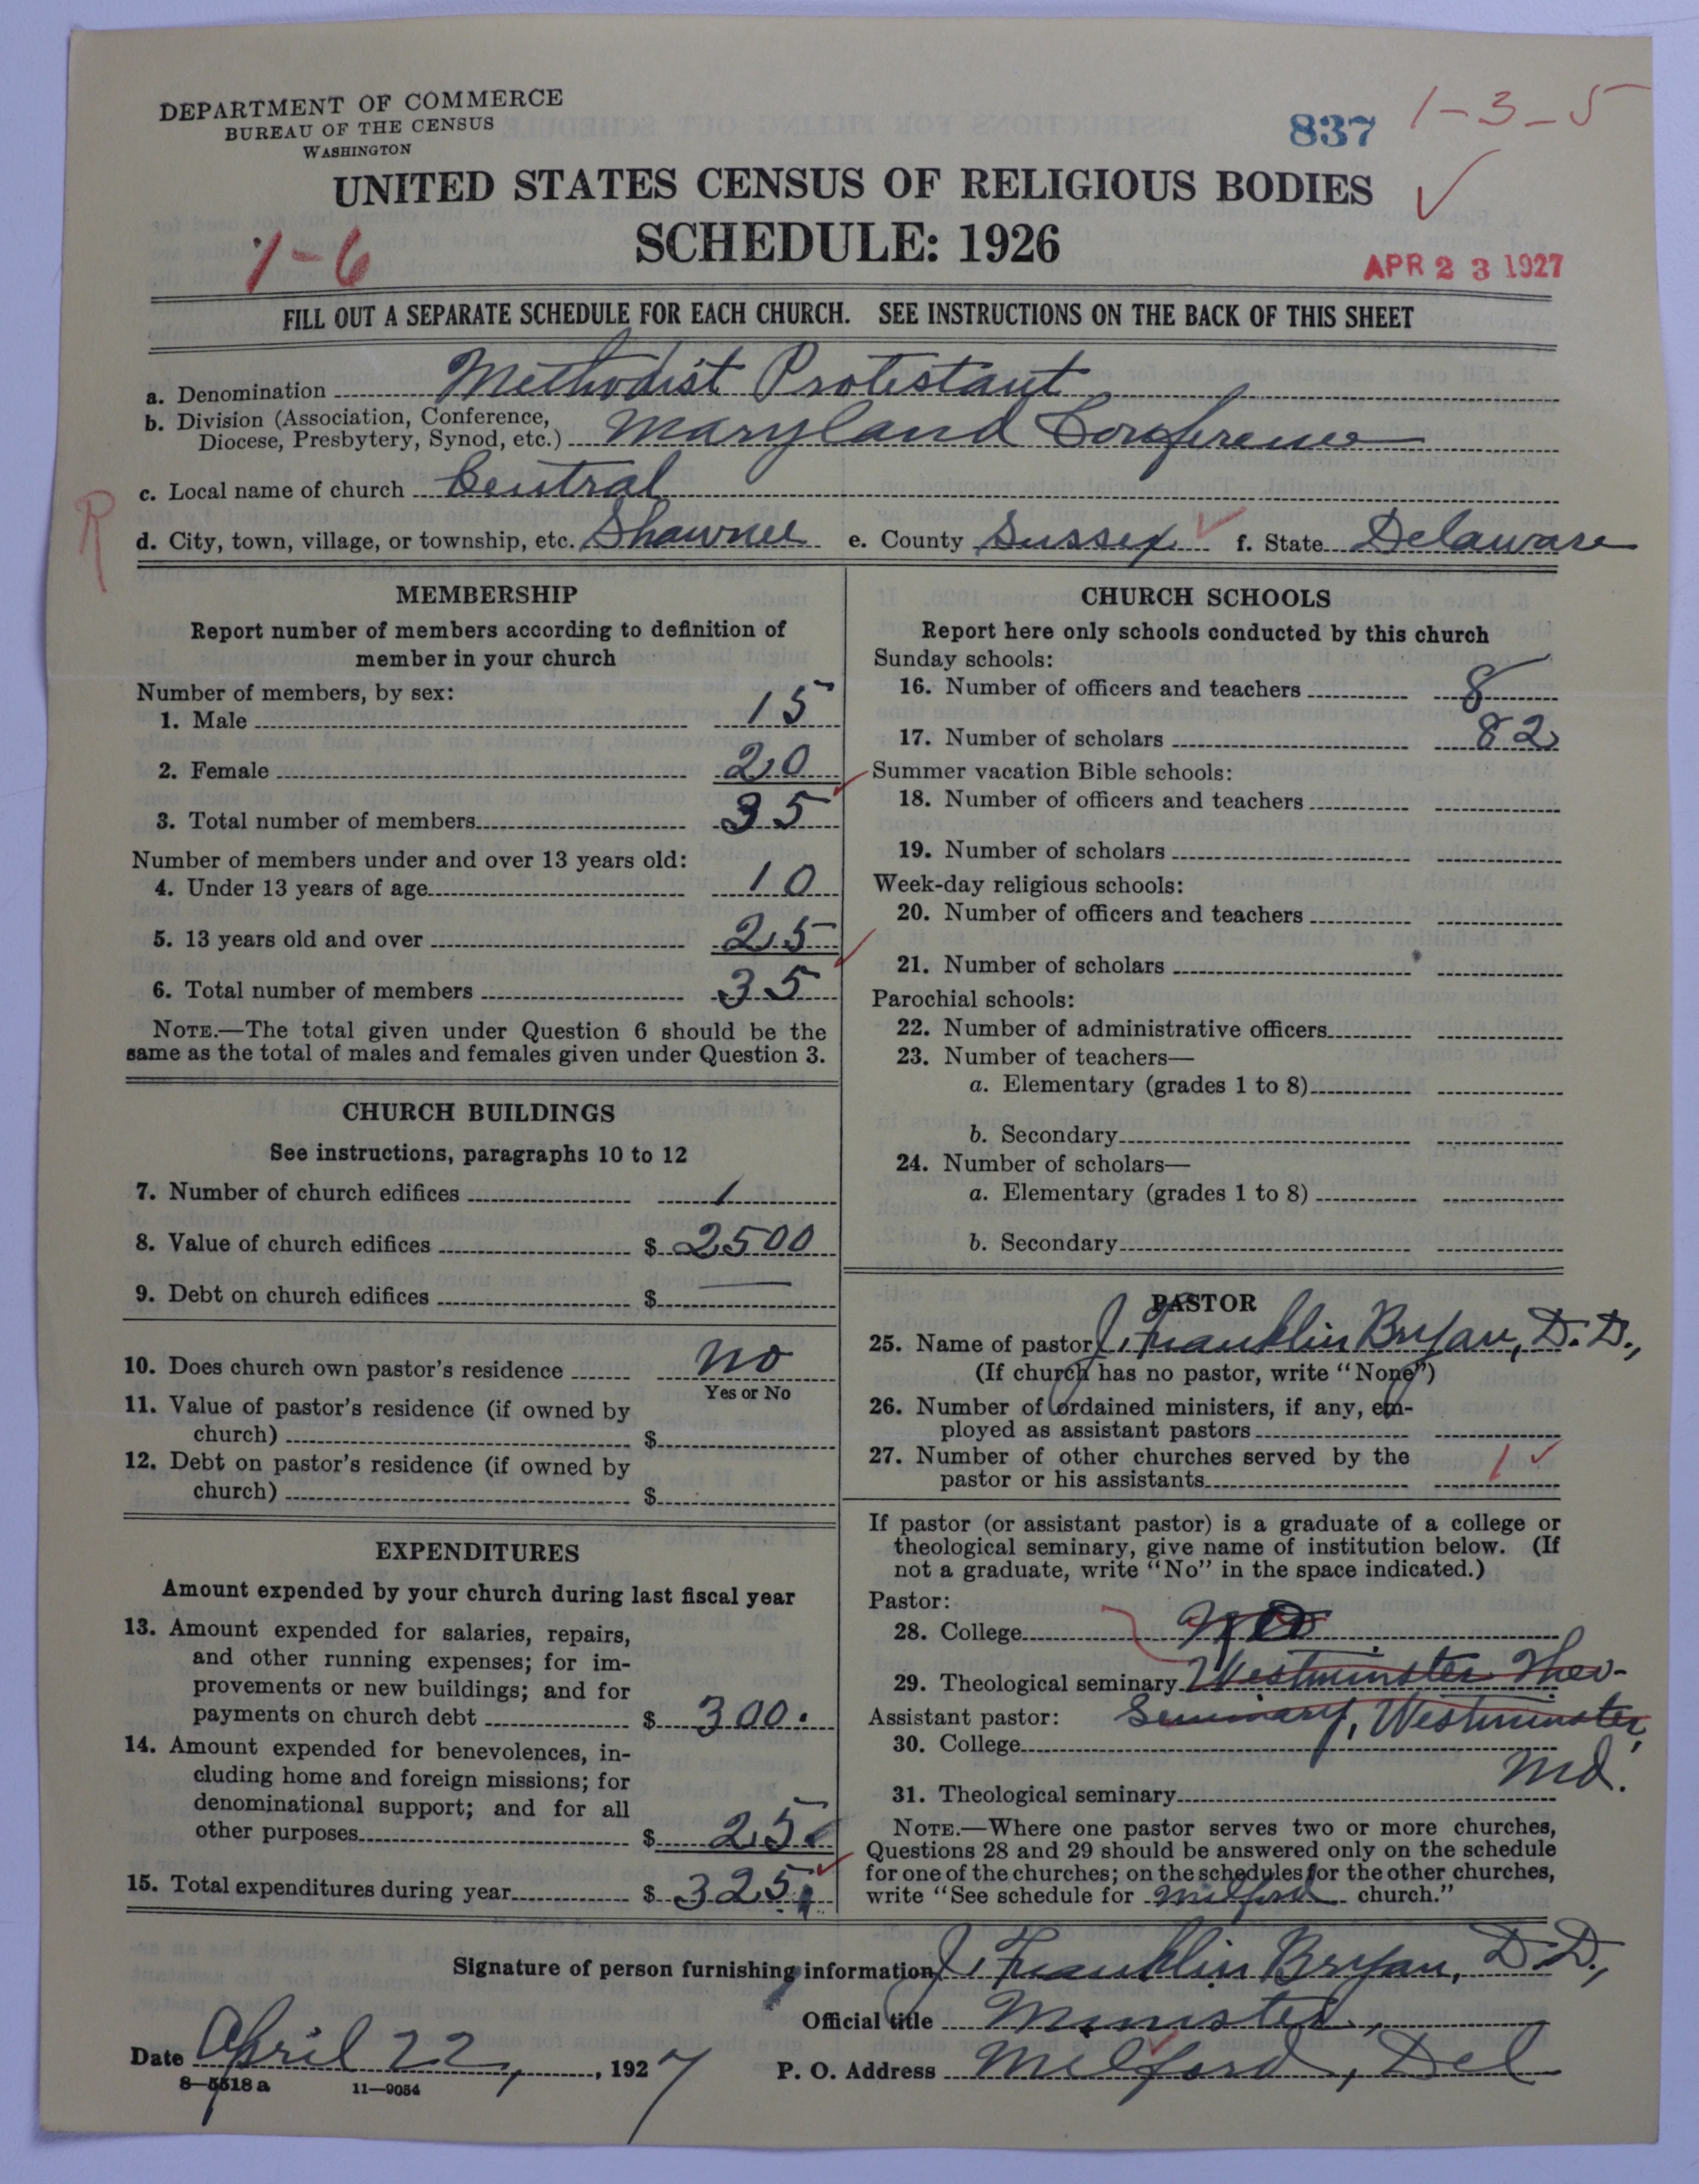 DEPARTMENT OF COMMERCE
BUREAU OF THE CENSUS
WASHINGTON
837 1-3-5
UNITED STATES CENSUS OF RELIGIOUS BODIES
SCHEDULE: 1926
1-6
APR 23 1927
FILL OUT A SEPARATE SCHEDULE FOR EACH CHURCH. SEE INSTRUCTIONS ON THE BACK OF THIS SHEET
a. Denomination Methodist Protestant
b. Division (Association, Conference,
Diocese, Presbytery, Synod, etc.) Maryland Conference
c. Local name of church Central
R
d. City, town, village, or township, etc. Shawnee e. County Sussex f. State Delaware
MEMBERSHIP
Report number of members according to definition of
member in your church
Number of members, by sex:
1. Male 15
2. Female 20
3. Total number of members 35
Number of members under and over 13 years old:
4. Under 13 years of age 10
5. 13 years old and over 25
6. Total number of members 35
NOTE.—The total given under Question 6 should be the
same as the total of males and females given under Question 3.
CHURCH BUILDINGS
See instructions, paragraphs 10 to 12
7. Number of church edifices 1
8. Value of church edifices $ 2500
9. Debt on church edifices $ —
10. Does church own pastor's residence no
Yes or No
11. Value of pastor's residence (if owned by
church) $
12. Debt on pastor's residence (if owned by
church) $
EXPENDITURES
Amount expended by your church during last fiscal year
13. Amount expended for salaries, repairs,
and other running expenses; for im-
provements or new buildings; and for
payments on church debt $ 300.
14. Amount expended for benevolences, in-
cluding home and foreign missions; for
denominational support; and for all
other purposes $ 25.
15. Total expenditures during year $ 325.
CHURCH SCHOOLS
Report here only schools conducted by this church
Sunday schools:
16. Number of officers and teachers 8
17. Number of scholars 82
Summer vacation Bible schools:
18. Number of officers and teachers
19. Number of scholars
Week-day religious schools:
20. Number of officers and teachers
21. Number of scholars
Parochial schools:
22. Number of administrative officers
23. Number of teachers—
a. Elementary (grades 1 to 8)
b. Secondary
24. Number of scholars—
a. Elementary (grades 1 to 8)
b. Secondary
PASTOR
25. Name of pastor J. Franklin Bryan, D.D.,
(If church has no pastor, write "None")
26. Number of ordained ministers, if any, em-
ployed as assistant pastors
27. Number of other churches served by the
pastor or his assistants 1
If pastor (or assistant pastor) is a graduate of a college or
theological seminary, give name of institution below. (If
not a graduate, write "No" in the space indicated.)
Pastor:
28. College no
29. Theological seminary Westminster Theo-
Assistant pastor: Seminary, Westminster,
30. College
Md.
31. Theological seminary
NOTE.—Where one pastor serves two or more churches,
Questions 28 and 29 should be answered only on the schedule
for one of the churches; on the schedules for the other churches,
write "See schedule for Milford church."
Signature of person furnishing information J. Franklin Bryan, D.D.,
Official title Minister,
Date April 22, 1927 P. O. Address Milford, Del
8-5518a 11-9054